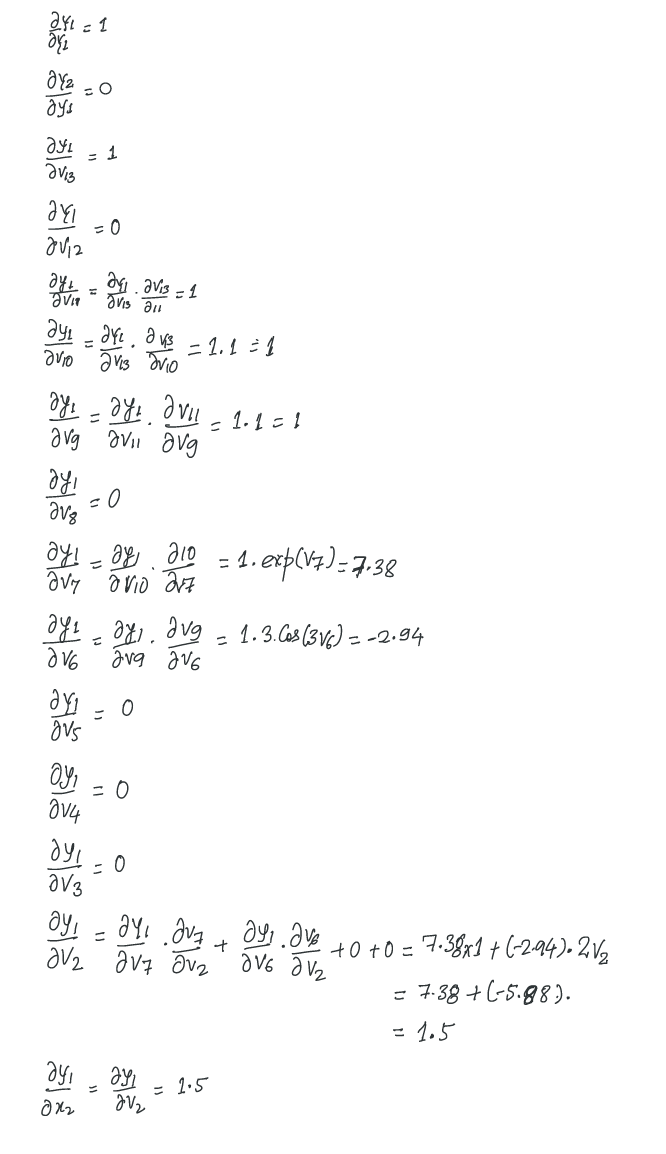 ∂y₁/∂y₁ = 1
∂y₂/∂y₁ = 0
∂y₁/∂v₁₃ = 1
∂y₁/∂v₁₂ = 0
∂y₁/∂v₁₁ = ∂y₁/∂v₁₃ · ∂v₁₃/∂₁₁ = 1
∂y₁/∂v₁₀ = ∂y₁/∂v₁₃ · ∂v₁₃/∂v₁₀ = 1.1 = 1
∂y₁/∂v₉ = ∂y₁/∂v₁₁ · ∂v₁₁/∂v₉ = 1.1 = 1
∂y₁/∂v₈ = 0
∂y₁/∂v₇ = ∂y₁/∂v₁₀ · ∂10/∂7 = 1. exp(v₇) = 7.38
∂y₁/∂v₆ = ∂y₁/∂v₉ · ∂v₉/∂v₆ = 1.3.Cos(3v₆) = -2.94
∂y₁/∂v₅ = 0
∂y₁/∂v₄ = 0
∂y₁/∂v₃ = 0
∂y₁/∂v₂ = ∂y₁/∂v₇ · ∂v₇/∂v₂ + ∂y₁/∂v₆ · ∂v₆/∂v₂ + 0 + 0 = 7.38x1 + (-2.94). 2v₂
= 7.38 + (-5.88).
= 1.5
∂y₁/∂x₂ = ∂y₁/∂v₂ = 1.5